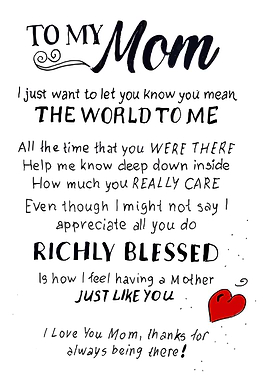 TO MY Mom
I just want to let you know you mean
THE WORLD TO ME
All the time that you WERE THERE
Help me know deep down inside
How much you REALLY CARE
Even though I might not say I
appreciate all you do
RICHLY BLESSED
Is how I feel having a Mother
JUST LIKE YOU
I Love You Mom, thanks for
always being there!